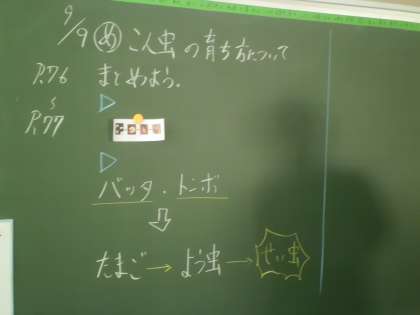 9/9 め こん虫の育ち方について
P.76 まとめよう。
P.77
バッタ・トンボ
たまご → よう虫 → せい虫